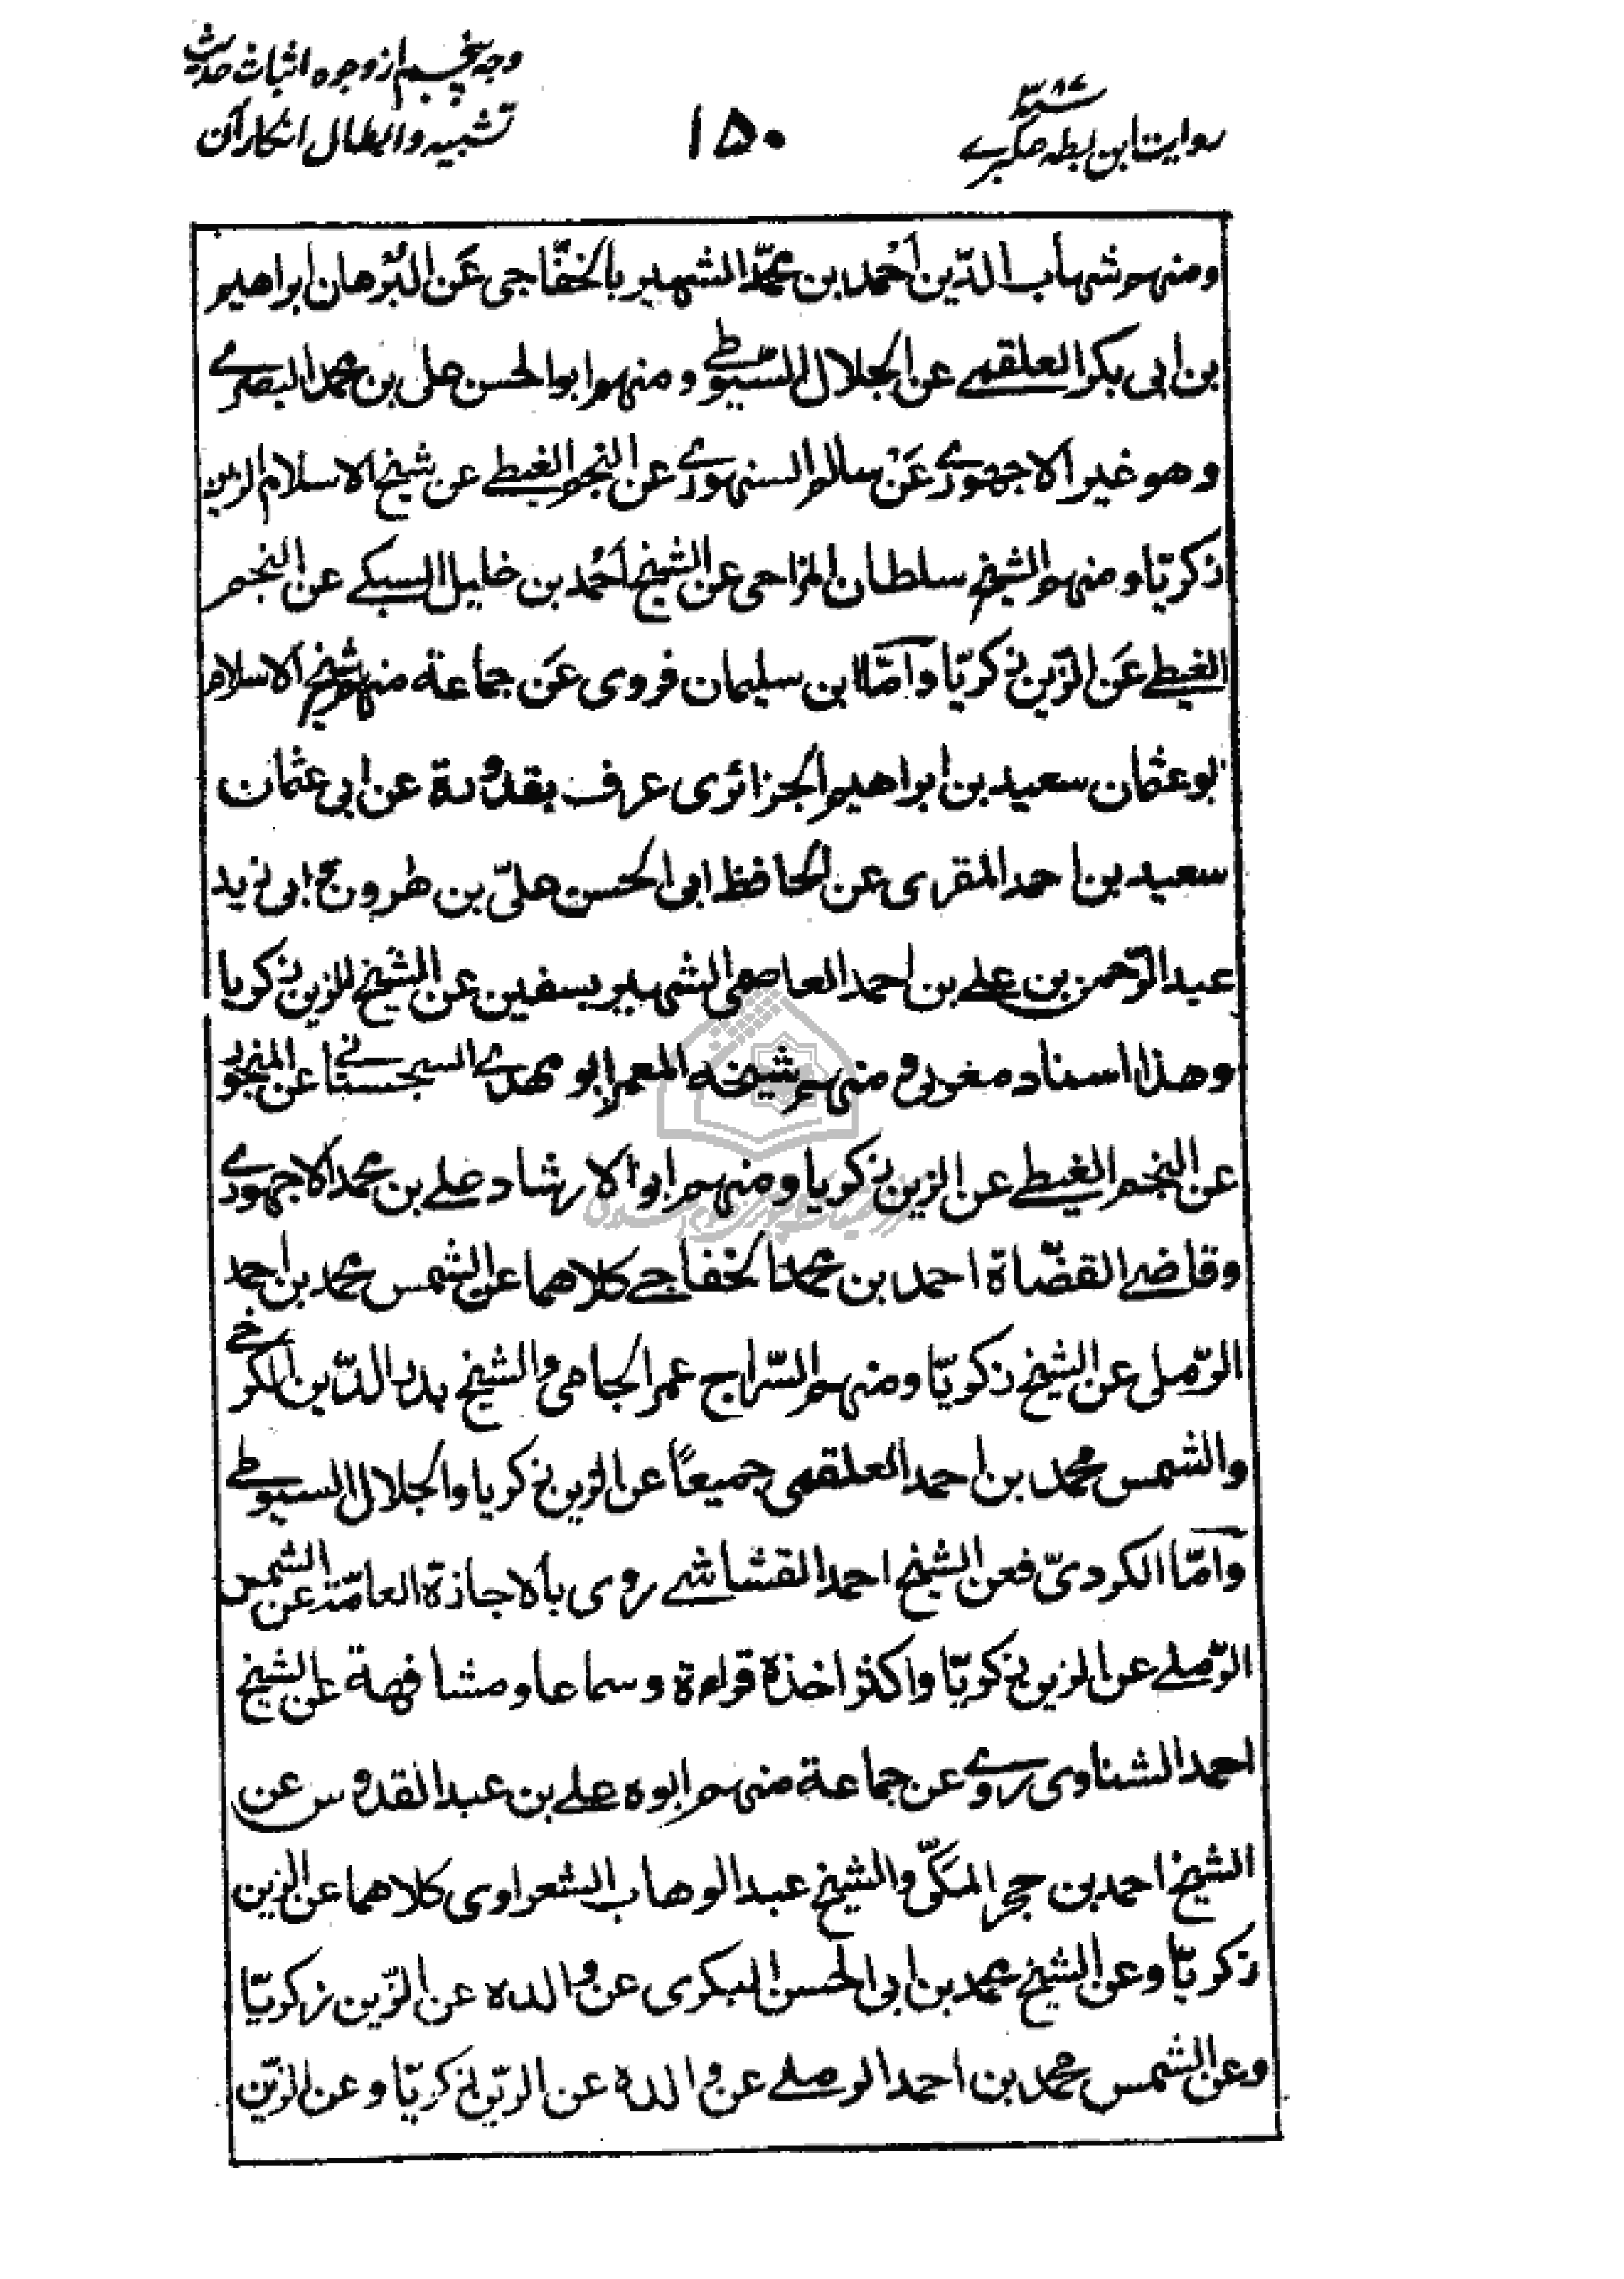 روايت ابن بطه عكبرے
١٥٠
وجه پنجم از وجوه اثبات حديث
تشبيه وابطال انكار آن
ومنهم شهاب الدّين أحمد بن محمّد الشهير بالخفّاجى عَن البُرهان ابراهيم
بن ابى بكر العلقمے عن الجلال السّيوطے ومنهم ابوالحسن على بن محمد البصرے
وهو غير الاجهورے عَنْ سالم السنهورے عن النجم الغيطے عن شيخ الاسلام الزين
زكريّا ومنهم الشيخ سلطان المزاحى عن الشيخ أحمد بن خليل السبكے عن النجم
الغيطے عَن الزّين زكريّا وامّا ابن سليمان فروى عَن جماعة منهم شيخ الاسلام
ابوعثمان سعيد بن ابراهيم الجزائرى عرف بقدورة عن ابى عثمان
سعيد بن احمد المقرى عن الحافظ ابى الحسن علىّ بن هارون ابى زيد
عبد الرّحمن بن علے بن احمد العاصمى الشهير بسفين عن الشيخ الزين زكريا
وهذا اسناد مغربى ومنهم شيخه المعمر ابو مهدے السجستانے عن المنجور
عن النجم الغيطے عن الزين زكريا ومنهم ابوالارشاد علے بن محمد الاجهورے
وقاضے القضّاة احمد بن محمد الخفاجے كلاهما عن الشمس محمد بن احمد
الرّملى عن الشيخ زكريّا ومنهم السّراج عمر الجامى والشيخ بدر الدّين الكرخے
والشمس محمد بن احمد العلقمى جميعًا عن الزين زكريا والجلال السيوطے
وامّا الكردىّ فعن الشيخ احمد القشاشے روى بالاجازة العامّة عن الشمس
الرّملے عن الزين زكريّا واكثر اخذه قراءة وسماعا ومشافهة عن الشيخ
احمد الشناوى روے عن جماعة منهم ابوه علے بن عبد القدوس عن
الشيخ احمد بن حجر المكّى والشيخ عبد الوهاب الشعراوى كلاهما عن الزين
زكريّا وعن الشيخ محمد بن ابى الحسن البكرى عن والده عن الزّين زكريّا
وعن الشمس محمد بن احمد الرملے عن والده عن الزّين زكريّا وعن الزّين